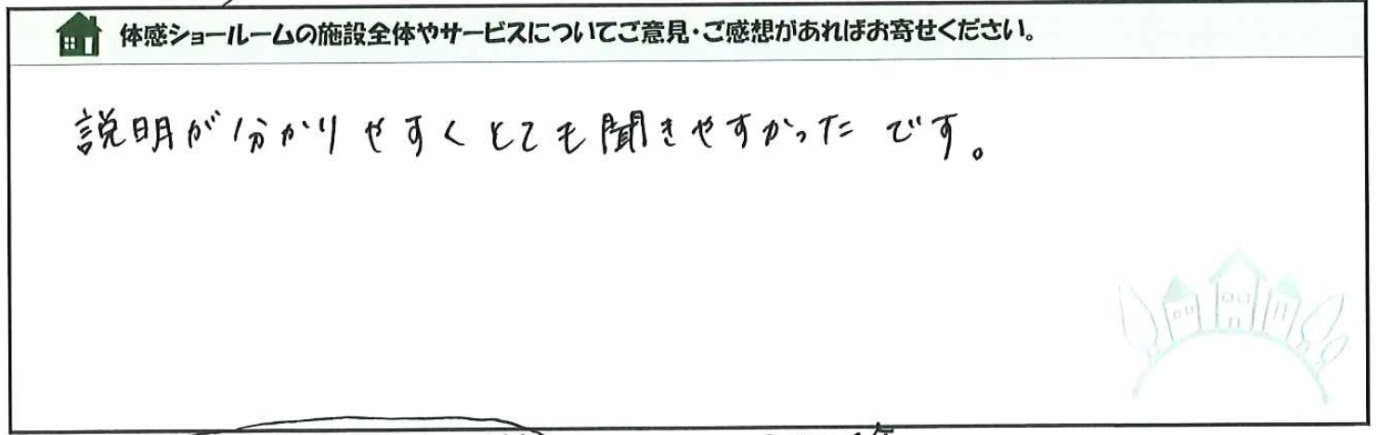 体感ショールームの施設全体やサービスについてご意見・ご感想があればお寄せください。
説明が分かりやすくとても聞きやすかったです。